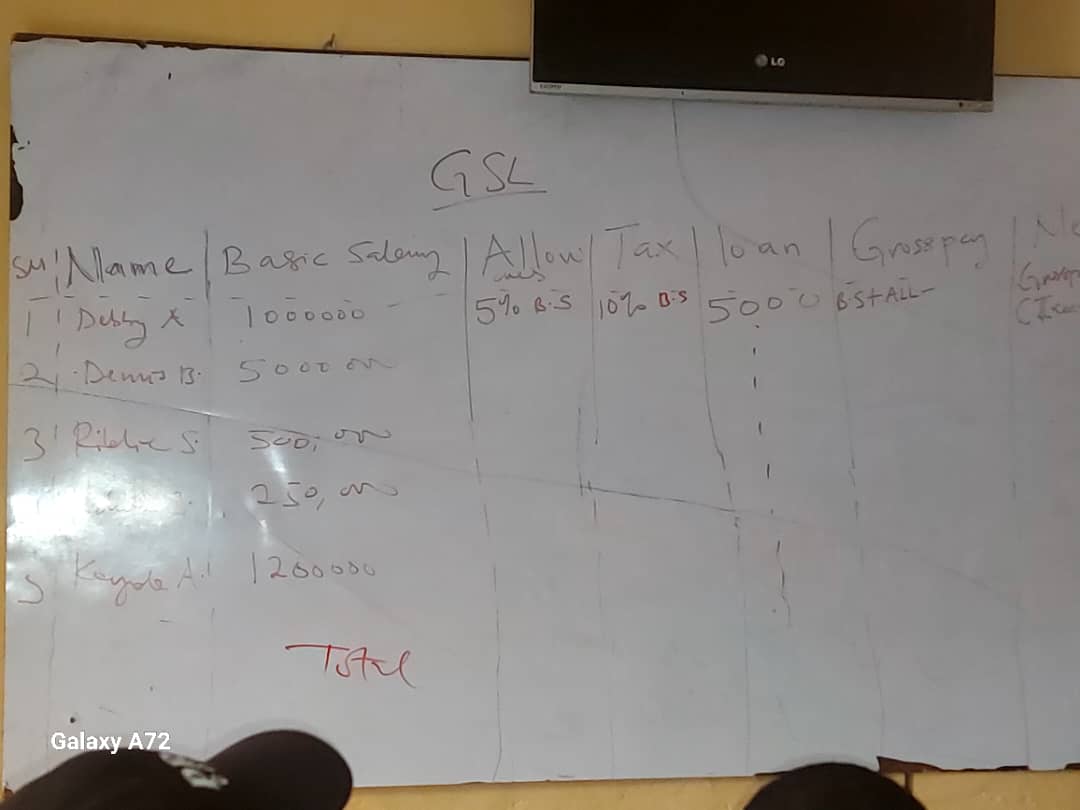 LG
GSL
S/N Name Basic Salary Allowances Tax loan Grosspay
1 Debby A 1000000 5% B.S 10% B.S 5000 B.S+ALL
2 Dennis B. 5000
3 S. 500,
250,
5 Kayode A. 1200000
Total
Galaxy A72